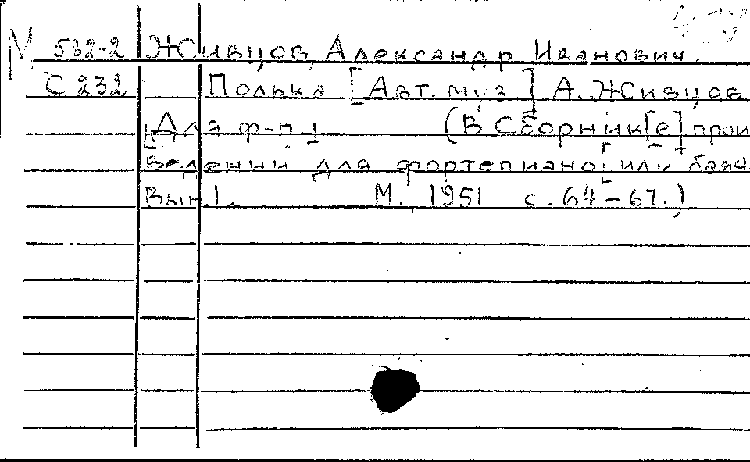 М 532-2 Живцов, Александр Иванович.
С 232 Полька [Авт. муз.] А. Живцов
[Для ф-п.] (В Сборник[е] произ
ведений для фортепиано [или баяна]
Вып. 1. М., 1951 с. 64-67.)